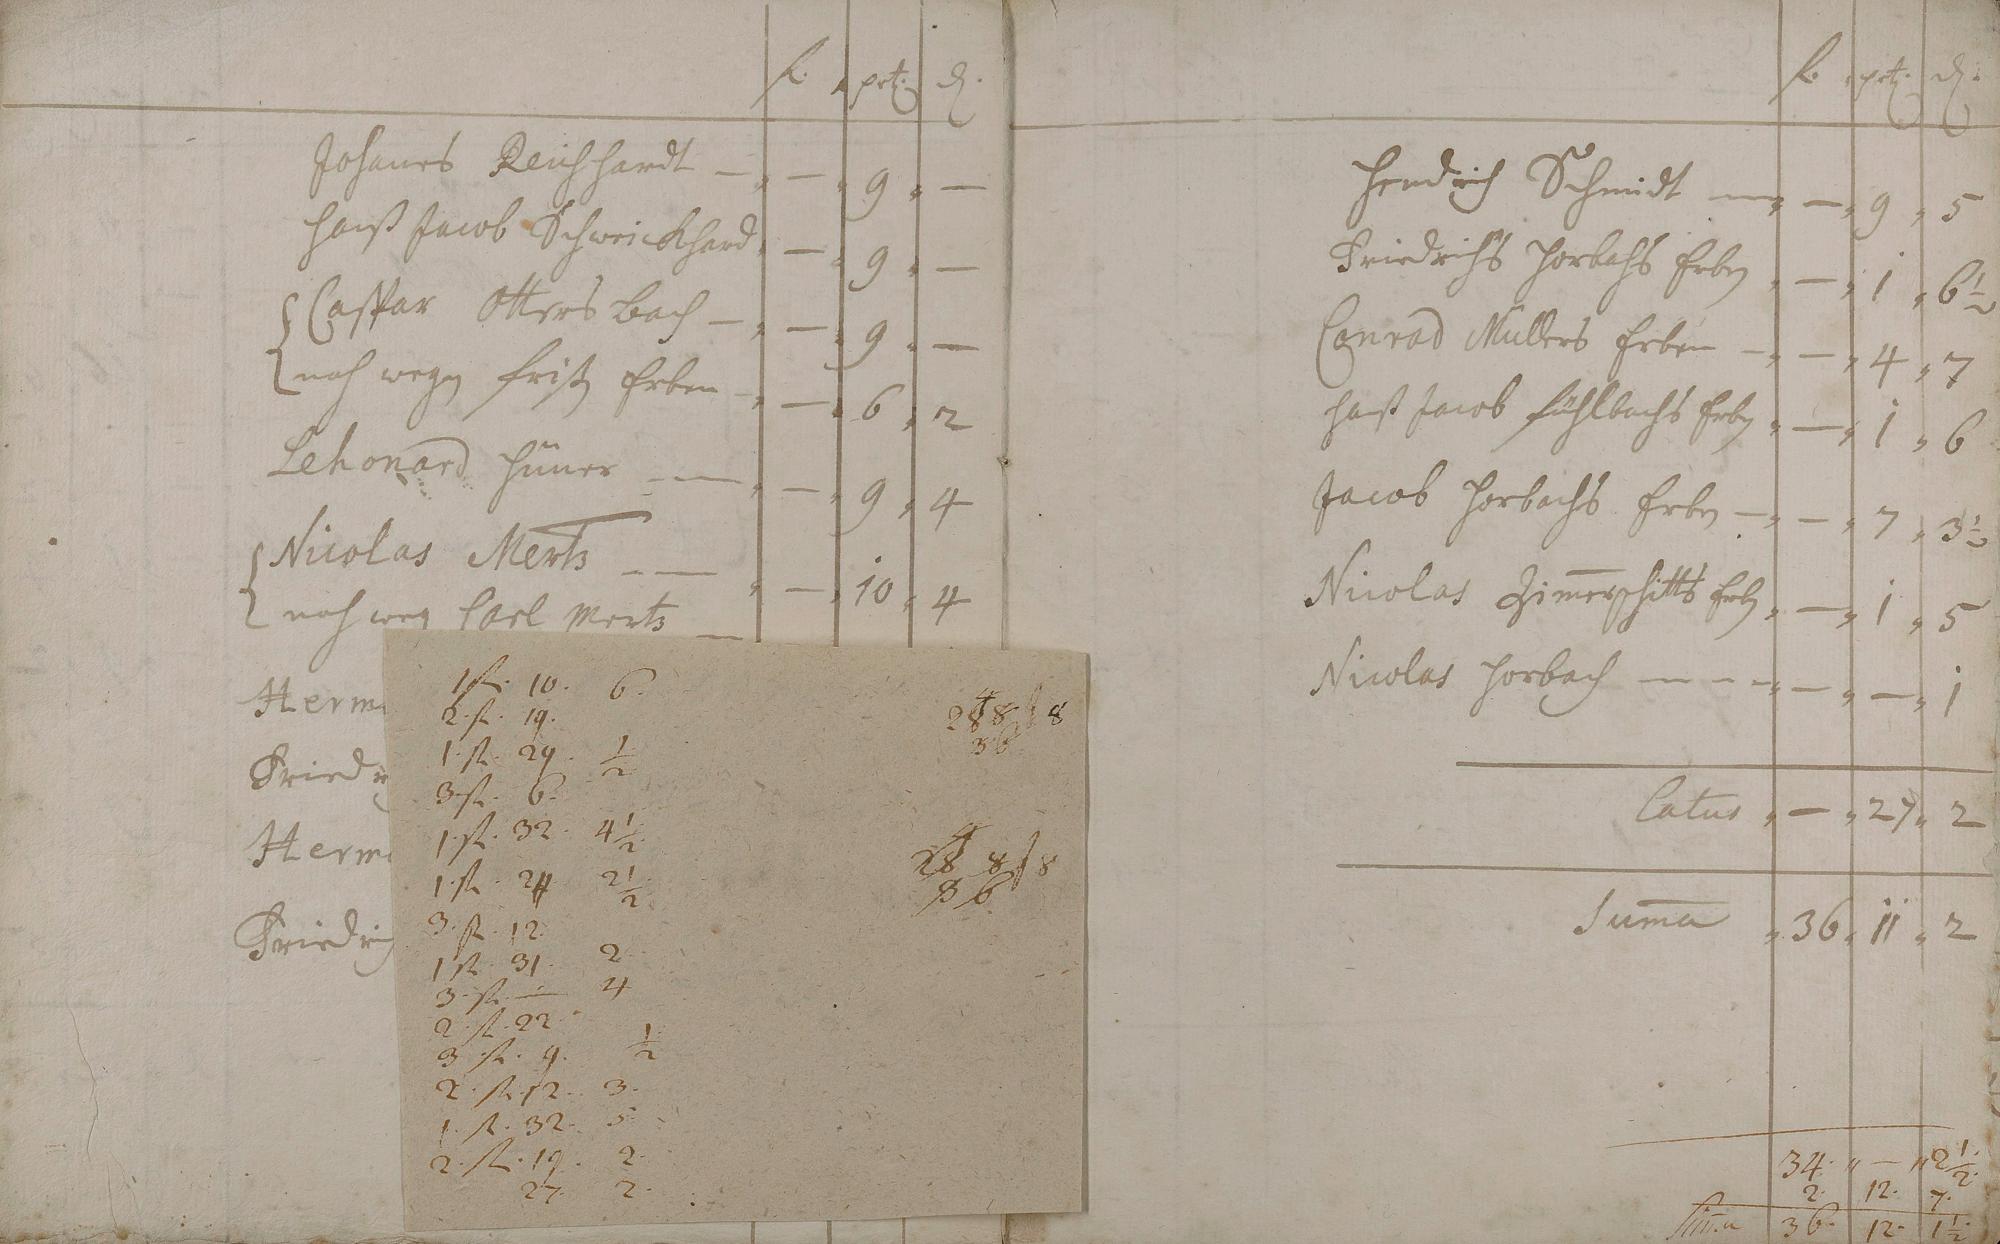 fl. prt. d.
Johanes Reichhardt — — 9 —
hanß Jacob Schweickhard — 9 —
Caspar Otters bach — — 9 —
noch wegen Erben — — 6 2
Lehonard Hüner — — 9 4
Nicolas Mertz —
noch weg Carl Mertz — — 10 4
Herma
Friedri
Herma
Friedrich
1 fl. 10. 6.
2. fl. 19.
1. fl. 29. 1/2
3 fl. 6.
1. fl. 32. 4 1/2
1. fl. 2 1/2
3. fl. 12
1 fl. 31. 2
3. fl. — 4
2. fl. 22.
3 fl. 9. 1/2
2. fl. 12. 3.
1. fl. 32. 5
2. fl. 19. 2.
27. 2.
288 8
36
28 8 8
36
fl. prt. d.
Hendrich Schmidt — — 9 5
Friedrichs Horbachs Erben — 1 6 1/2
Conrad Mullers Erben — — 4 7
hanß Jacob Erben — 1 6
Jacob Horbachs Erben — — 7 3 1/2
Nicolas Erben — 1 5
Nicolas Horbach — — — 1
Latus — 27 2
Summa 36 11 2
34. — 2 1/2
2. 12. 7.
Summa 36. 12. 1 1/2